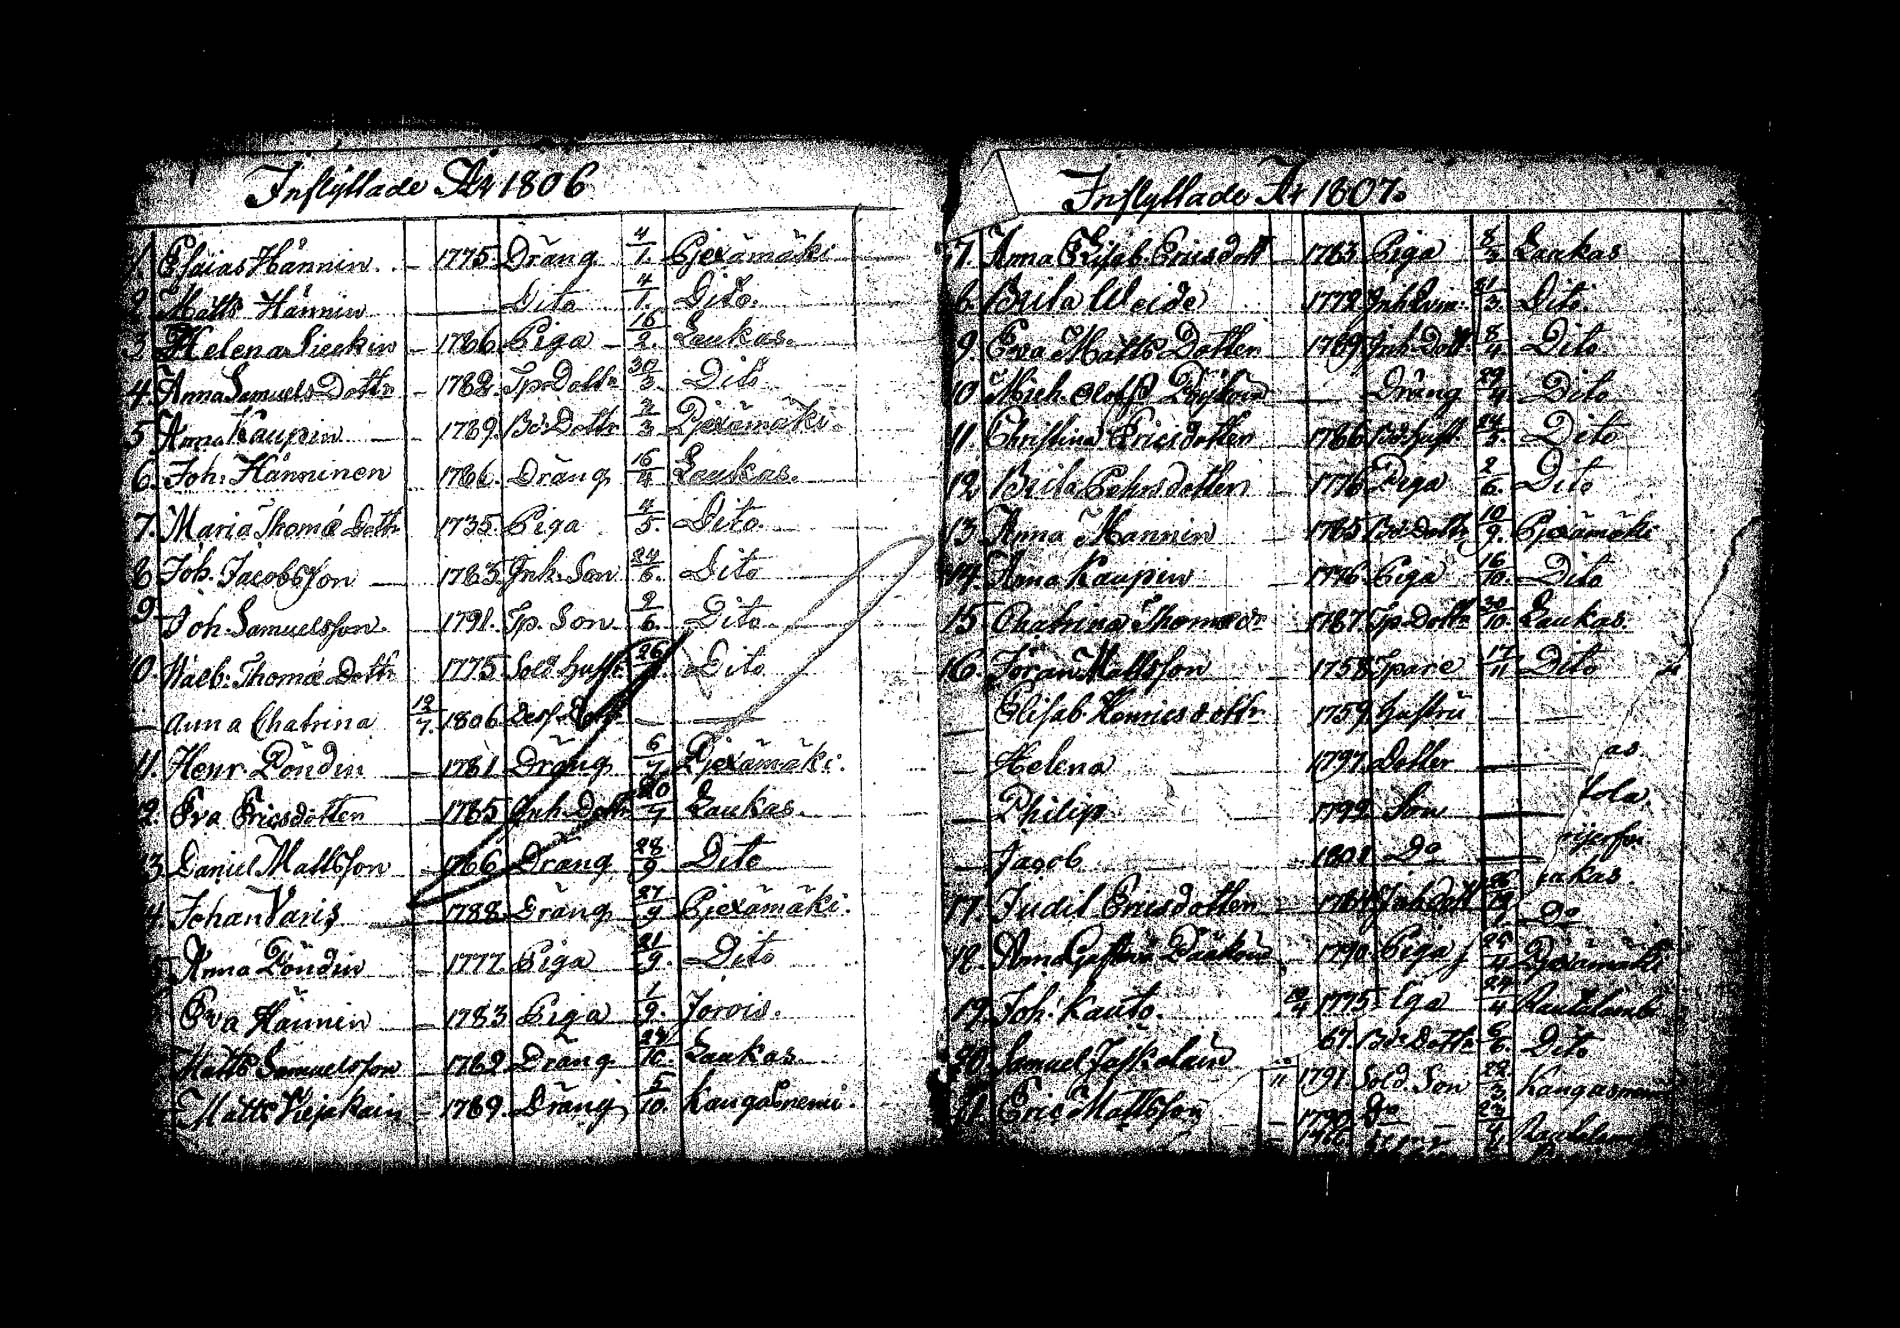 Inflyttade År 1806
1. Esaias Hännin 1775. Dräng 4/1. Pjexämäki
2. Matts Hännin Dito 4/1. Dito.
3. Helena Sieckin 1786. Piga 16/2. Laukas.
4. Anna Samuels Dottr 1782. Tp. Dottr 30/3. Dito
5. Anna Kaupin 1789. Bd. Dottr 2/3 Pjexämäki.
6. Joh. Hänninen 1786. Dräng 16/4 Laukas.
7. Maria Thomæ Dottr 1735. Piga 4/5. Dito.
8. Joh. Jacobsson 1783. Inh. Son 24/6. Dito
9. Joh. Samuelsson 1791. Tp. Son 2/6. Dito
10. Walb: Thomæ Dottr 1775. Sold. Hustr. Dito
Anna Chatrina 12/7. 1806
11. Henr. Pöndin 1781 Dräng 6/7 Pjexämäki.
12. Eva Ericsdotter 1785 Inh. Dottr 20/7 Laukas.
13. Daniel Mattsson 1766 Dräng 28/9 Dito
14. Johan Varis 1788. Dräng 27/9 Pjexämäki.
Anna Pöndin 1777. Piga 21/9. Dito
Eva Hännin 1783 Piga 1/9. Jorois.
Matts Samuelsson 1789. Dräng 24/10. Laukas
Matts 1789. Dräng 5/10. Kangasnemi.
Inflyttade År 1807.
7. Anna Elisab. Ericsdott 1783 Piga 8/3 Laukas
8. Brita Weide 1772 Inh. 21/3. Dito.
9. Eva Matts Dotter 1789. Inh. Dott. 8/4 Dito.
10 Mich. Olofss. Dräng 29/4. Dito
11 Christina Ericsdotter 1786. Bd. Hust. 24/5. Dito
12 Brita Pehrsdotter 1776. Piga 2/6. Dito
13 Anna Hannin 1785 Bd. Dottr 10/9. Pjexämäki
14. Anna Kaupin 1776. Piga 16/10. Dito
15. Chatrina Thomædr 1787. Tp. Dottr 30/10. Laukas.
16. Jöran Mattsson 1758. Spare 17/11 Dito
Elisab. Henricsdottr 1759. Hustru
Helena 1797. Dotter as.
Philip 1799 Son tola.
Jacob 1801 Do
17. Judit Ericsdotter Inh. Dott Do
18. Anna 1790. Piga 25/4 Pjexämäki
19. Joh. Kauto. 12/4 1775. 24/4 Rautalamb
20. Samuel Jäskeläin 67. Bd. Dottr Dito
21. Eric Mattsson 1791 Sold. Son 22/3. Kangasnem
1790. Do